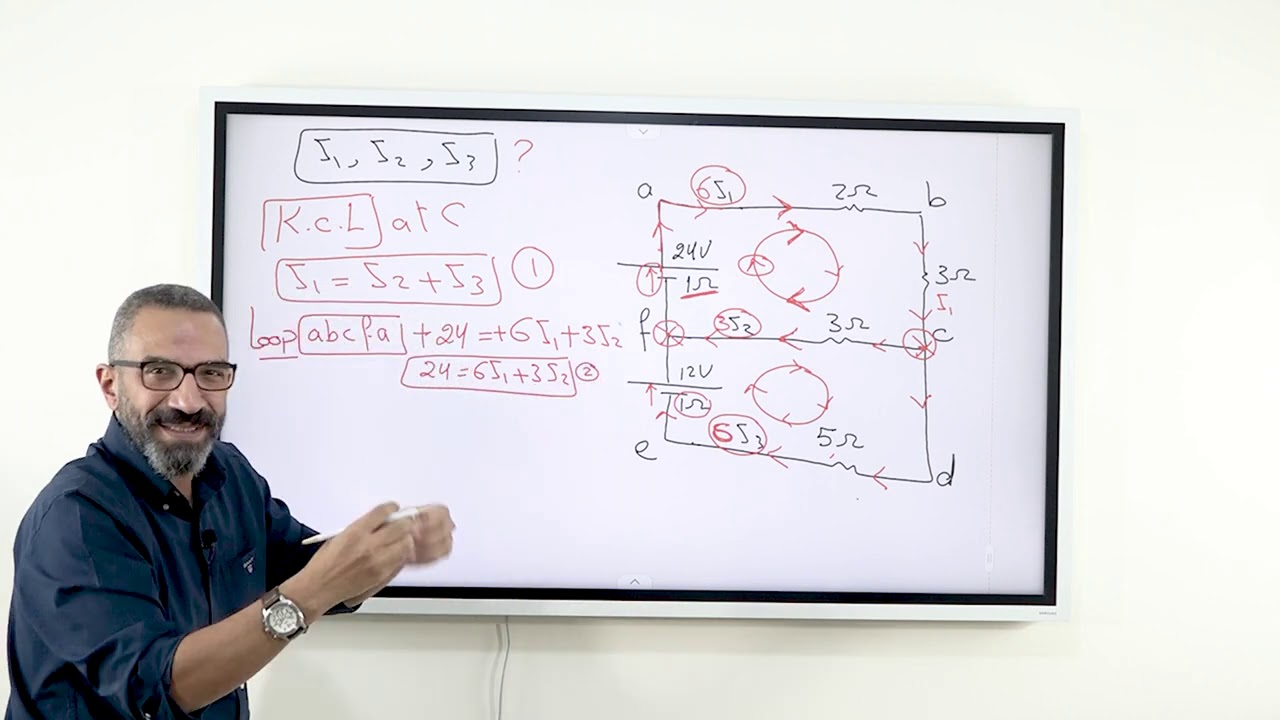 I₁, I₂, I₃ ?
K.C.L at C
I₁ = I₂ + I₃ ①
Loop abcfa + 24 = +6I₁+3I₂
24=6I₁+3I₂ ②
a 6I₁ 2Ω b
24V
1Ω
3Ω
I₁
f 3I₂ 3Ω c
12V
1Ω
e 6I₃ 5Ω d